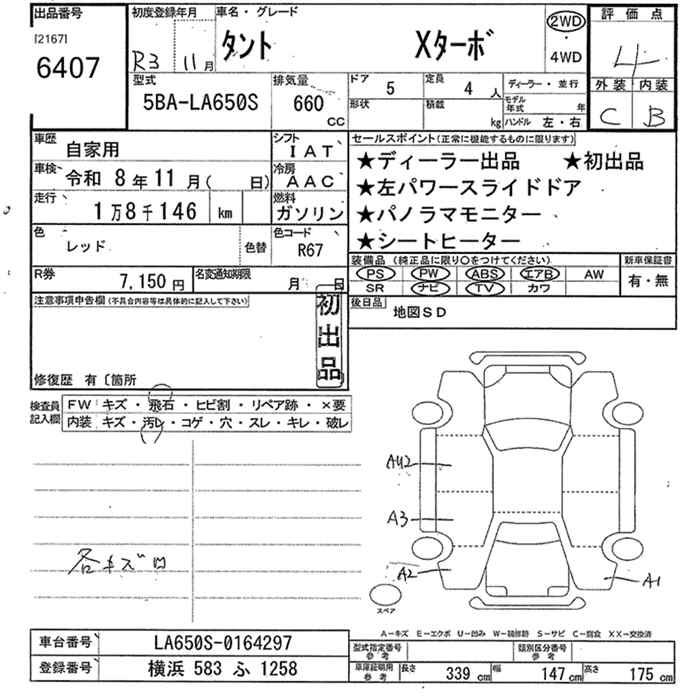 出品番号
[2167]
6407
初度登録年月
R3 11月
車名・グレード
タント Xターボ
2WD
・
4WD
評価点
4
外装 内装
C B
型式
5BA-LA650S
排気量
660
CC
ドア
5
定員
4人
形状
積載
kg
ディーラー・並行
モデル年式 年
ハンドル 左・右
車歴
自家用
シフト
IAT
車検
令和 8年11月( 日)
冷房
AAC
走行
1万8千146 km
燃料
ガソリン
色
レッド
色替
色コード
R67
R券
7,150円
名変通知期限
月 日
セールスポイント(正常に機能するものに限ります)
★ディーラー出品 ★初出品
★左パワースライドドア
★パノラマモニター
★シートヒーター
装備品(純正品に限り○をつけてください)
PS PW ABS エアB AW
SR ナビ TV カワ
新車保証書
有・無
後日品
地図SD
注意事項申告欄(不具合内容等は具体的に記入して下さい)
初出品
修復歴 有〔箇所
検査員記入欄
FW キズ・飛石・ヒビ割・リペア跡・×要
内装 キズ・汚レ・コゲ・穴・スレ・キレ・破レ
各キズ凹
AU2
A3
A2
A1
スペア
A-キズ E-エクボ U-凹み W-補修跡 S-サビ C-腐食 XX-交換済
車台番号
LA650S-0164297
登録番号
横浜 583 ふ 1258
型式指定番号
参考
類別区分番号
参考
車庫証明用
参考
長さ
339 cm
幅
147 cm
高さ
175 cm